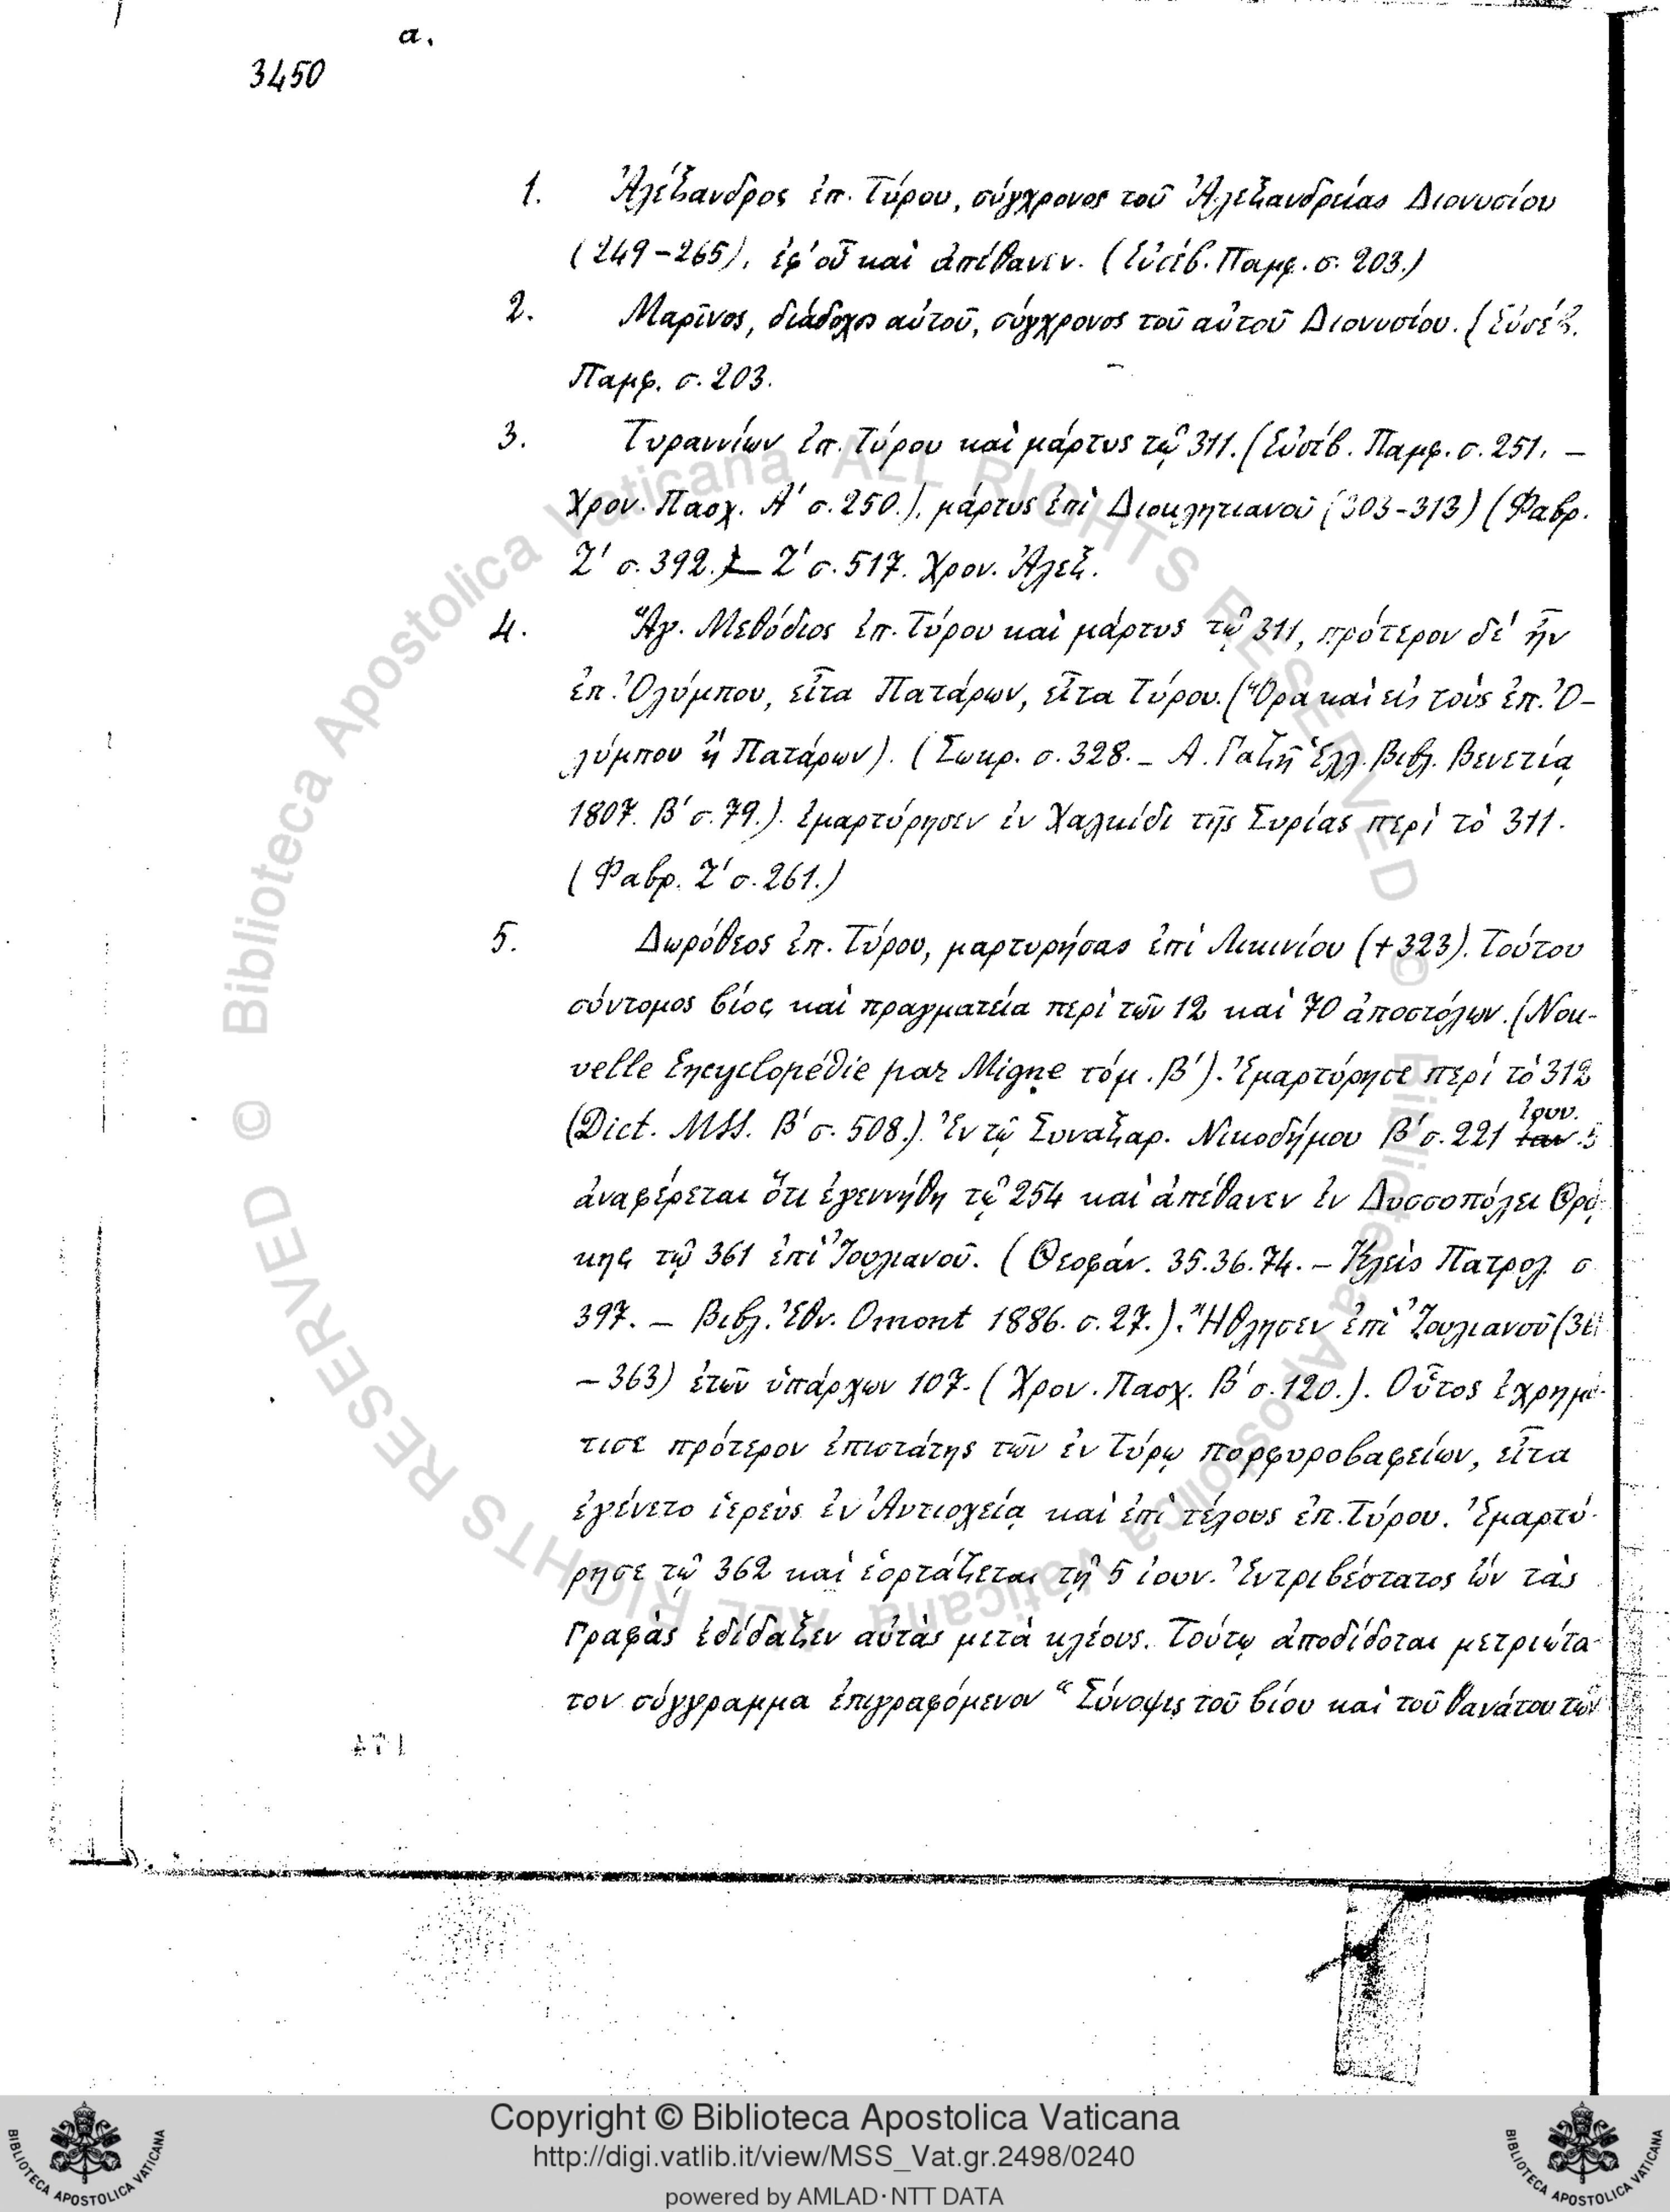 α.
3450
1. Ἀλέξανδρος ἐπ. Τύρου, σύγχρονος τοῦ Ἀλεξανδρείας Διονυσίου
(249-265), ἐφ' οὗ καὶ ἀπέθανεν. (Εὐσέβ. Παμφ. σ. 203.)
2. Μαρῖνος, διάδοχος αὐτοῦ, σύγχρονος τοῦ αὐτοῦ Διονυσίου. (Εὐσέβ.
Παμφ. σ. 203.
3. Τυραννίων ἐπ. Τύρου καὶ μάρτυς τῷ 311. (Εὐσέβ. Παμφ. σ. 251. –
Χρον. Πασχ. Α' σ. 250.), μάρτυς ἐπὶ Διοκλητιανοῦ (303-313) (Φαβρ.
Ζ' σ. 392.) – Ζ' σ. 517. Χρον. Ἀλεξ.
4. Ἅγ. Μεθόδιος ἐπ. Τύρου καὶ μάρτυς τῷ 311, πρότερον δὲ ἦν
ἐπ. Ὀλύμπου, εἶτα Πατάρων, εἶτα Τύρου. (Ὅρα καὶ εἰς τοὺς ἐπ. Ὀ-
λύμπου ἢ Πατάρων). (Σωκρ. σ. 328. – Α. Γαζῆ Ἑλλ. Βιβλ. Βενετίᾳ
1807. Β' σ. 79.). Ἐμαρτύρησεν ἐν Χαλκίδι τῆς Συρίας περὶ τὸ 311.
(Φαβρ. Ζ' σ. 261.)
5. Δωρόθεος ἐπ. Τύρου, μαρτυρήσας ἐπὶ Λικινίου (+323). Τούτου
σύντομος βίος καὶ πραγματεία περὶ τῶν 12 καὶ 70 ἀποστόλων. (Nou-
velle Encyclopédie par Migne τόμ. Β'). Ἐμαρτύρησε περὶ τὸ 312
(Dict. MSS. Β' σ. 508.). Ἐν τῷ Συναξαρ. Νικοδήμου Β' σ. 221 Ἰουν. 5
ἀναφέρεται ὅτι ἐγεννήθη τῷ 254 καὶ ἀπέθανεν ἐν Δυσσοπόλει Θρά-
κης τῷ 361 ἐπὶ Ἰουλιανοῦ. (Θεοφάν. 35.36.74. – Κλεὶς Πατρολ. σ
397. – Βιβλ. Ἐθν. Omont 1886. σ. 27.). Ἤθλησεν ἐπὶ Ἰουλιανοῦ (361
– 363) ἐτῶν ὑπάρχων 107. (Χρον. Πασχ. Β' σ. 120.). Οὗτος ἐχρημά-
τισε πρότερον ἐπιστάτης τῶν ἐν Τύρῳ πορφυροβαφείων, εἶτα
ἐγένετο ἱερεὺς ἐν Ἀντιοχείᾳ καὶ ἐπὶ τέλους ἐπ. Τύρου. Ἐμαρτύ-
ρησε τῷ 362 καὶ ἑορτάζεται τῇ 5 ἰουν. Ἐντριβέστατος ὢν τὰς
Γραφὰς ἐδίδαξεν αὐτὰς μετὰ κλέους. Τούτῳ ἀποδίδοται μετριώτα-
τον σύγγραμμα ἐπιγραφόμενον "Σύνοψις τοῦ βίου καὶ τοῦ θανάτου τῶν
© Biblioteca Apostolica Vaticana ALL RIGHTS RESERVED
© Biblioteca Apostolica Vaticana ALL RIGHTS RESERVED
Copyright © Biblioteca Apostolica Vaticana
http://digi.vatlib.it/view/MSS_Vat.gr.2498/0240
powered by AMLAD·NTT DATA
BIBLIOTECA APOSTOLICA VATICANA
BIBLIOTECA APOSTOLICA VATICANA